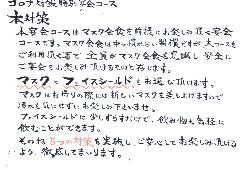 コロナ対策特別宴会コース
本対策
本宴会コースはマスク会食を前提にお楽しみ頂く宴会
コースです。マスク会食は中々慣れない習慣ですが、本コースを
ご利用頂く事で全員がマスク会食を意識し安全に
ご宴会をお楽しみ頂けるものと存じます。
マスクとフェイスシールドをお渡し致します。
マスクはお帰りの際には新しいマスクを差し上げますので
汚れを気にせずにお楽しみ下さいませ。
フェイスシールドは少しずらすだけで、飲み物も気軽に
飲むことができます。
その他5つの対策を実施し、ご安心してお楽しみ頂ける
よう、徹底してまいります。